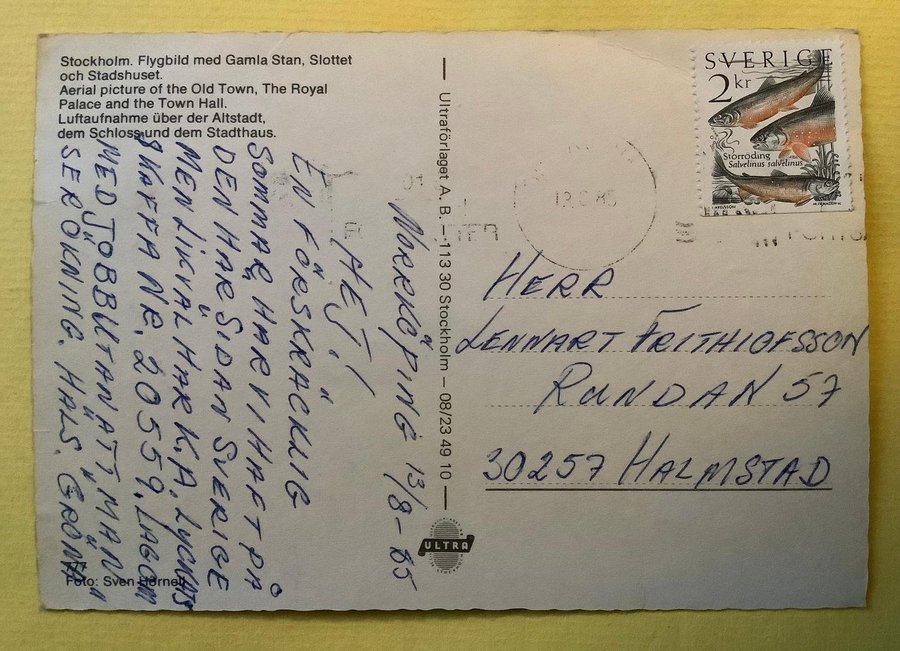 Stockholm. Flygbild med Gamla Stan, Slottet
och Stadshuset.
Aerial picture of the Old Town, The Royal
Palace and the Town Hall.
Luftaufnahme über der Altstadt,
dem Schloss und dem Stadthaus.
NORRKÖPING 13/8-85
HEJ!
EN FÖRSKRÄCKLIG
SOMMAR HAR VI HAFT PÅ
DEN HÄR SIDAN SVERIGE
MEN LIKVÄL HAR K.A. LYCKATS
SKAFFA NR. 20559. LAGOM
MED JOBB UTAN ATT MAN
SER ÖKNING. HÄLS.
777
Foto: Sven Hörnell
Ultraförlaget A. B. – 113 30 Stockholm – 08/23 49 10
ULTRA
SVERIGE
2 kr
Storröding
Salvelinus salvelinus
HERR
LENNART FRITHIOFSSON
RUNDAN 57
30257 HALMSTAD